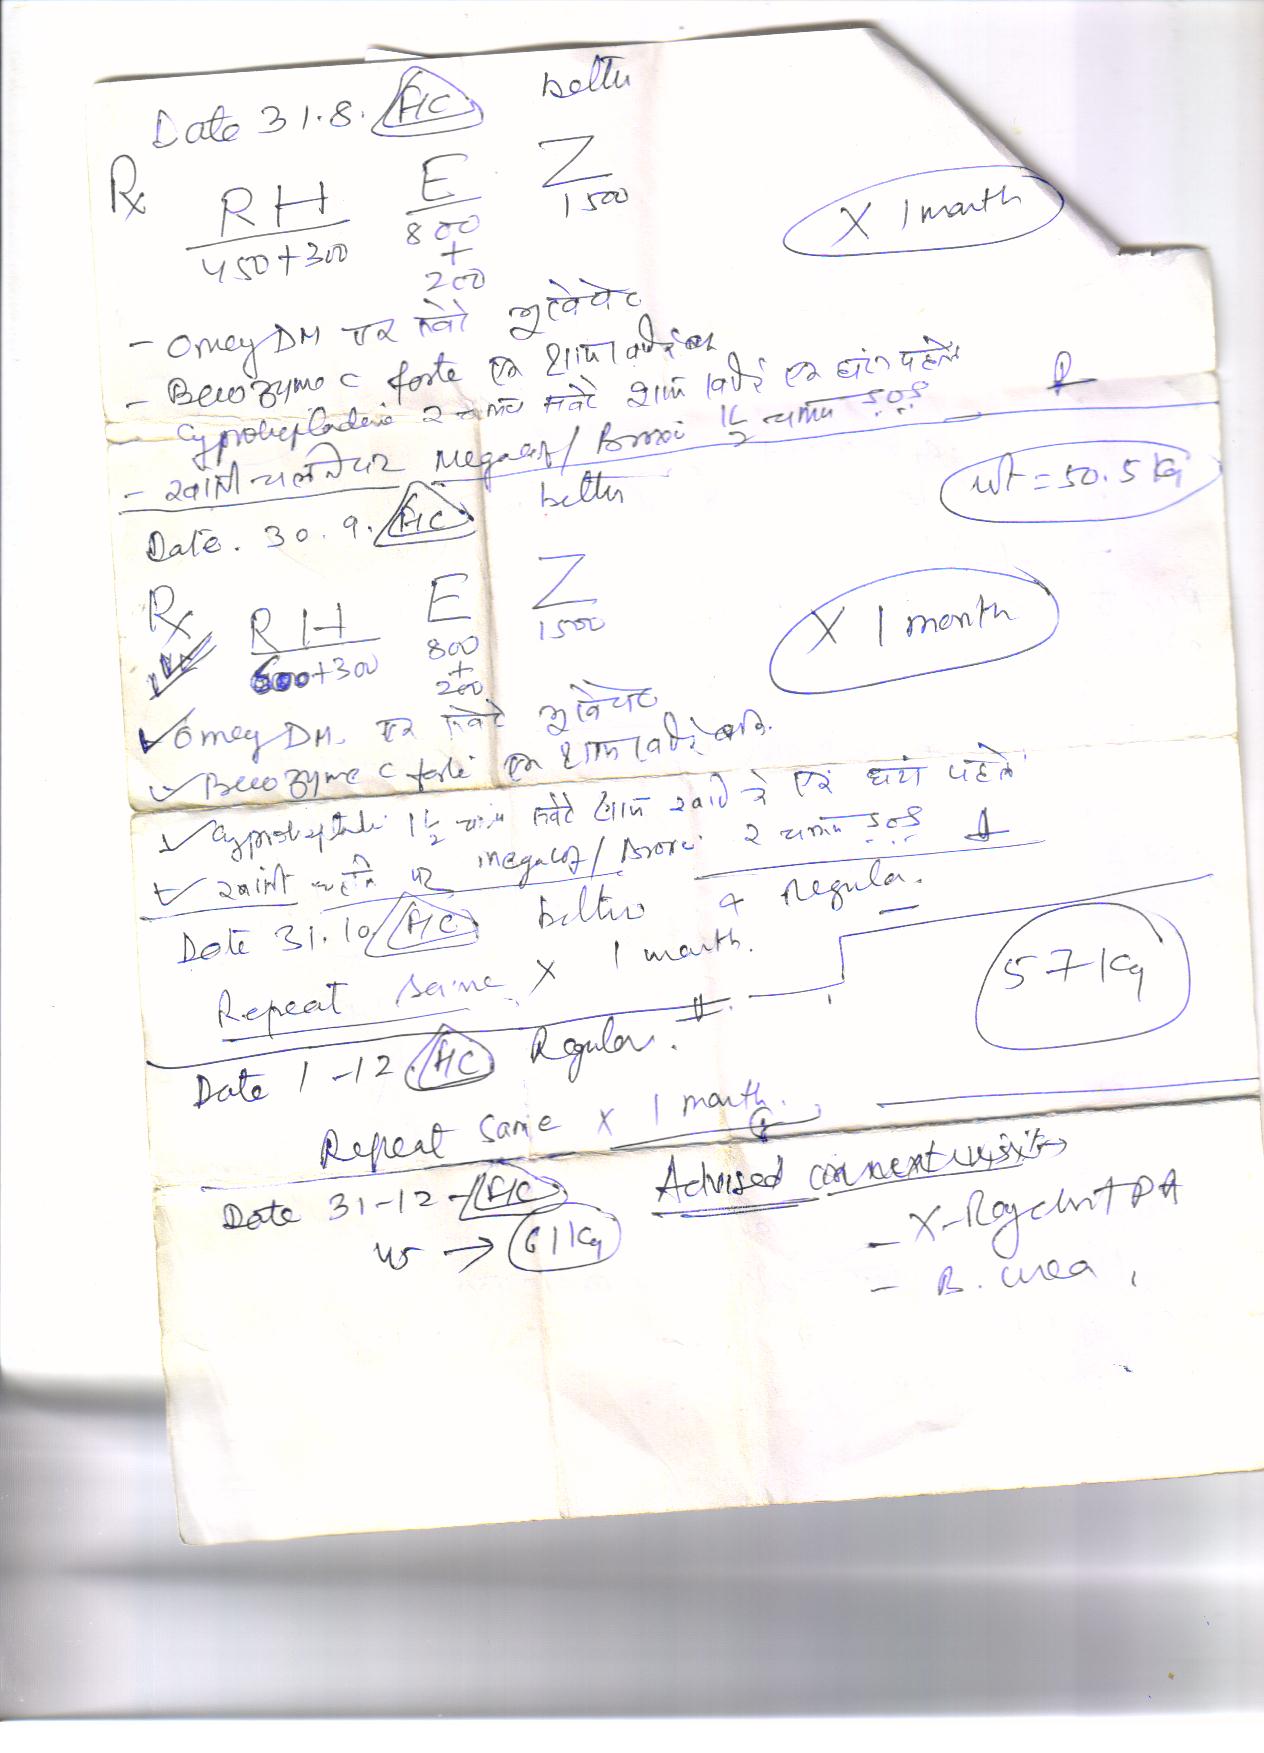 Date 31.8. F/C better
Rx RH E Z
450+300 800 + 200 1500
X 1 month
- Omey DM एक सवेरे भूखे पेट
- Becozyme C forte एक शाम खाने के बाद
- Cyproheptadine २ चम्मच सवेरे शाम खाने से एक घंटा पहले
- खांसी चलने पर Megacof / Broxi 1½ चम्मच SOS
Date. 30.9. F/C better
wt = 50.5 kg
Rx RH E Z
600+300 800 + 200 1500
X 1 month
Omey DM. एक सवेरे भूखे पेट
Becozyme C forte एक शाम खाने के बाद
Cyproheptadine 1½ चम्मच सवेरे शाम खाने से एक घंटा पहले
खांसी चलने पर Megacof / Broxi २ चम्मच SOS
Date 31.10 F/C better & Regular.
Repeat same X 1 month.
57 kg
Date 1-12 F/C Regular.
Repeat same X 1 month.
Date 31-12 F/C Advised
wt → 61 kg
- X-Ray chest PA
- B. urea,